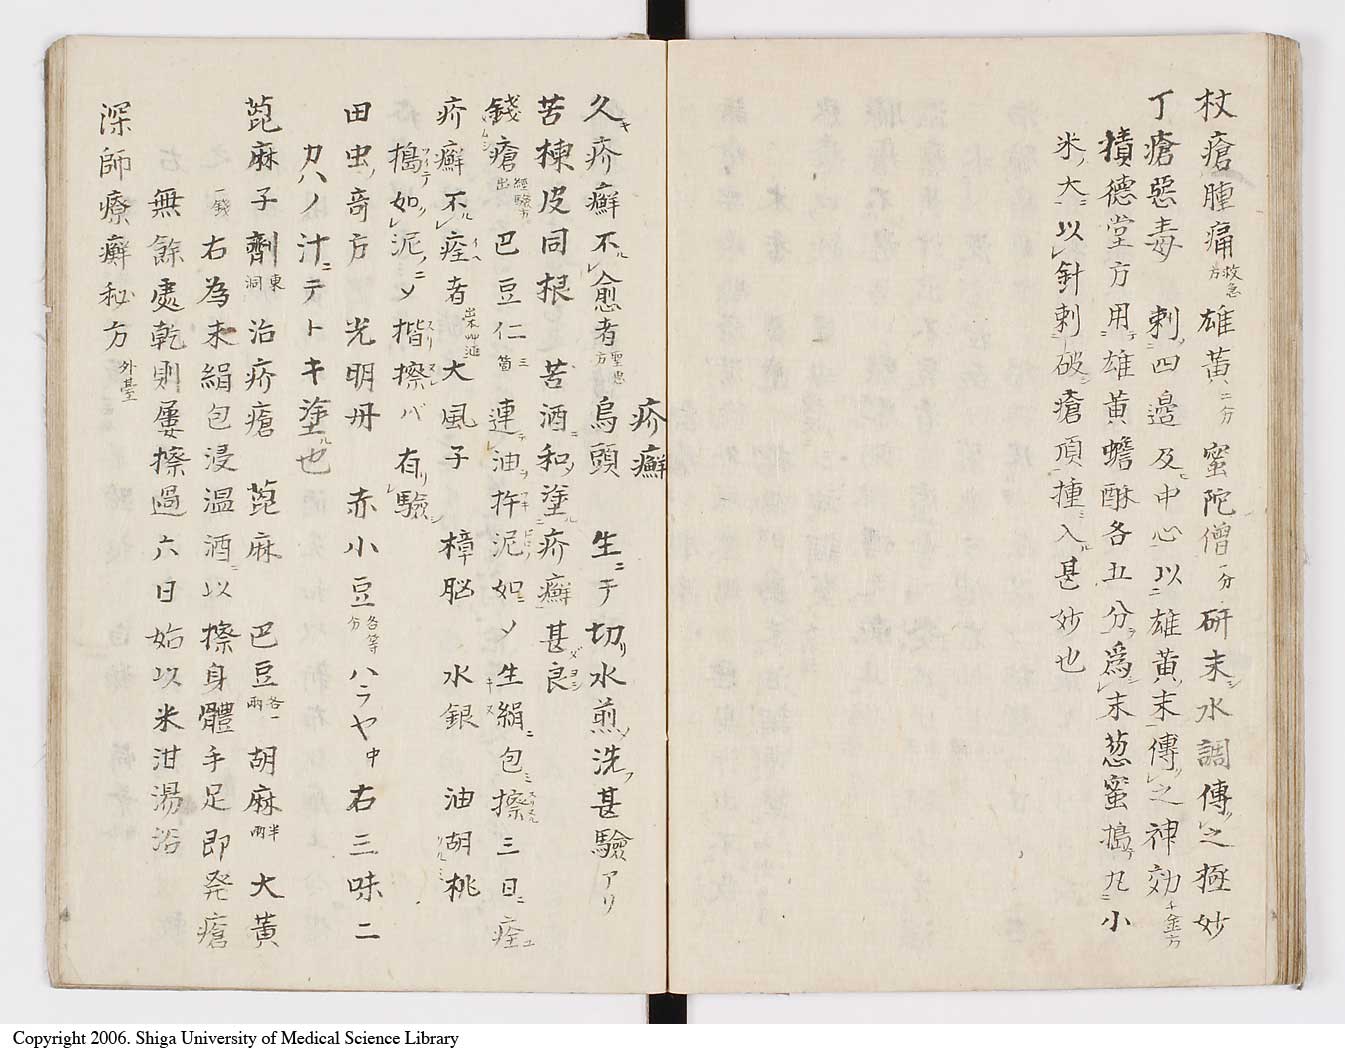 杖瘡腫痛救急方 雄黄二分 蜜陀僧一分 研末水調傅之極妙
丁瘡惡毒 刺四邉及中心以雄黄末傅之神効千金方
積德堂方用雄黄蟾酥各五分為末葱蜜搗丸小
米大以針刺破瘡頂挿入甚妙也
疥癬
久疥癬不愈者聖恵方 烏頭 生ニテ切水煎洗甚驗アリ
苦楝皮同根 苦酒和塗疥癬甚良
錢瘡經驗方出 巴豆仁三箇 連油杵泥如ニメ生絹包擦三日痊
疥癬不痊者 大風子 樟脳 水銀 油胡桃
搗如泥ニメ揩擦バ有驗
田虫竒方 光明丹 赤小豆各等分 ハラヤ中 右三味ニ
カハノ汁ニテトキ塗ル也
蓖麻子劑東洞 治疥瘡 蓖麻 巴豆各一兩 胡麻半兩 大黄
一錢 右為末絹包浸温酒以擦身體手足即発瘡
無餘處乾則屢擦過六日始以米泔湯浴
深師療癬秘方外臺
Copyright 2006. Shiga University of Medical Science Library